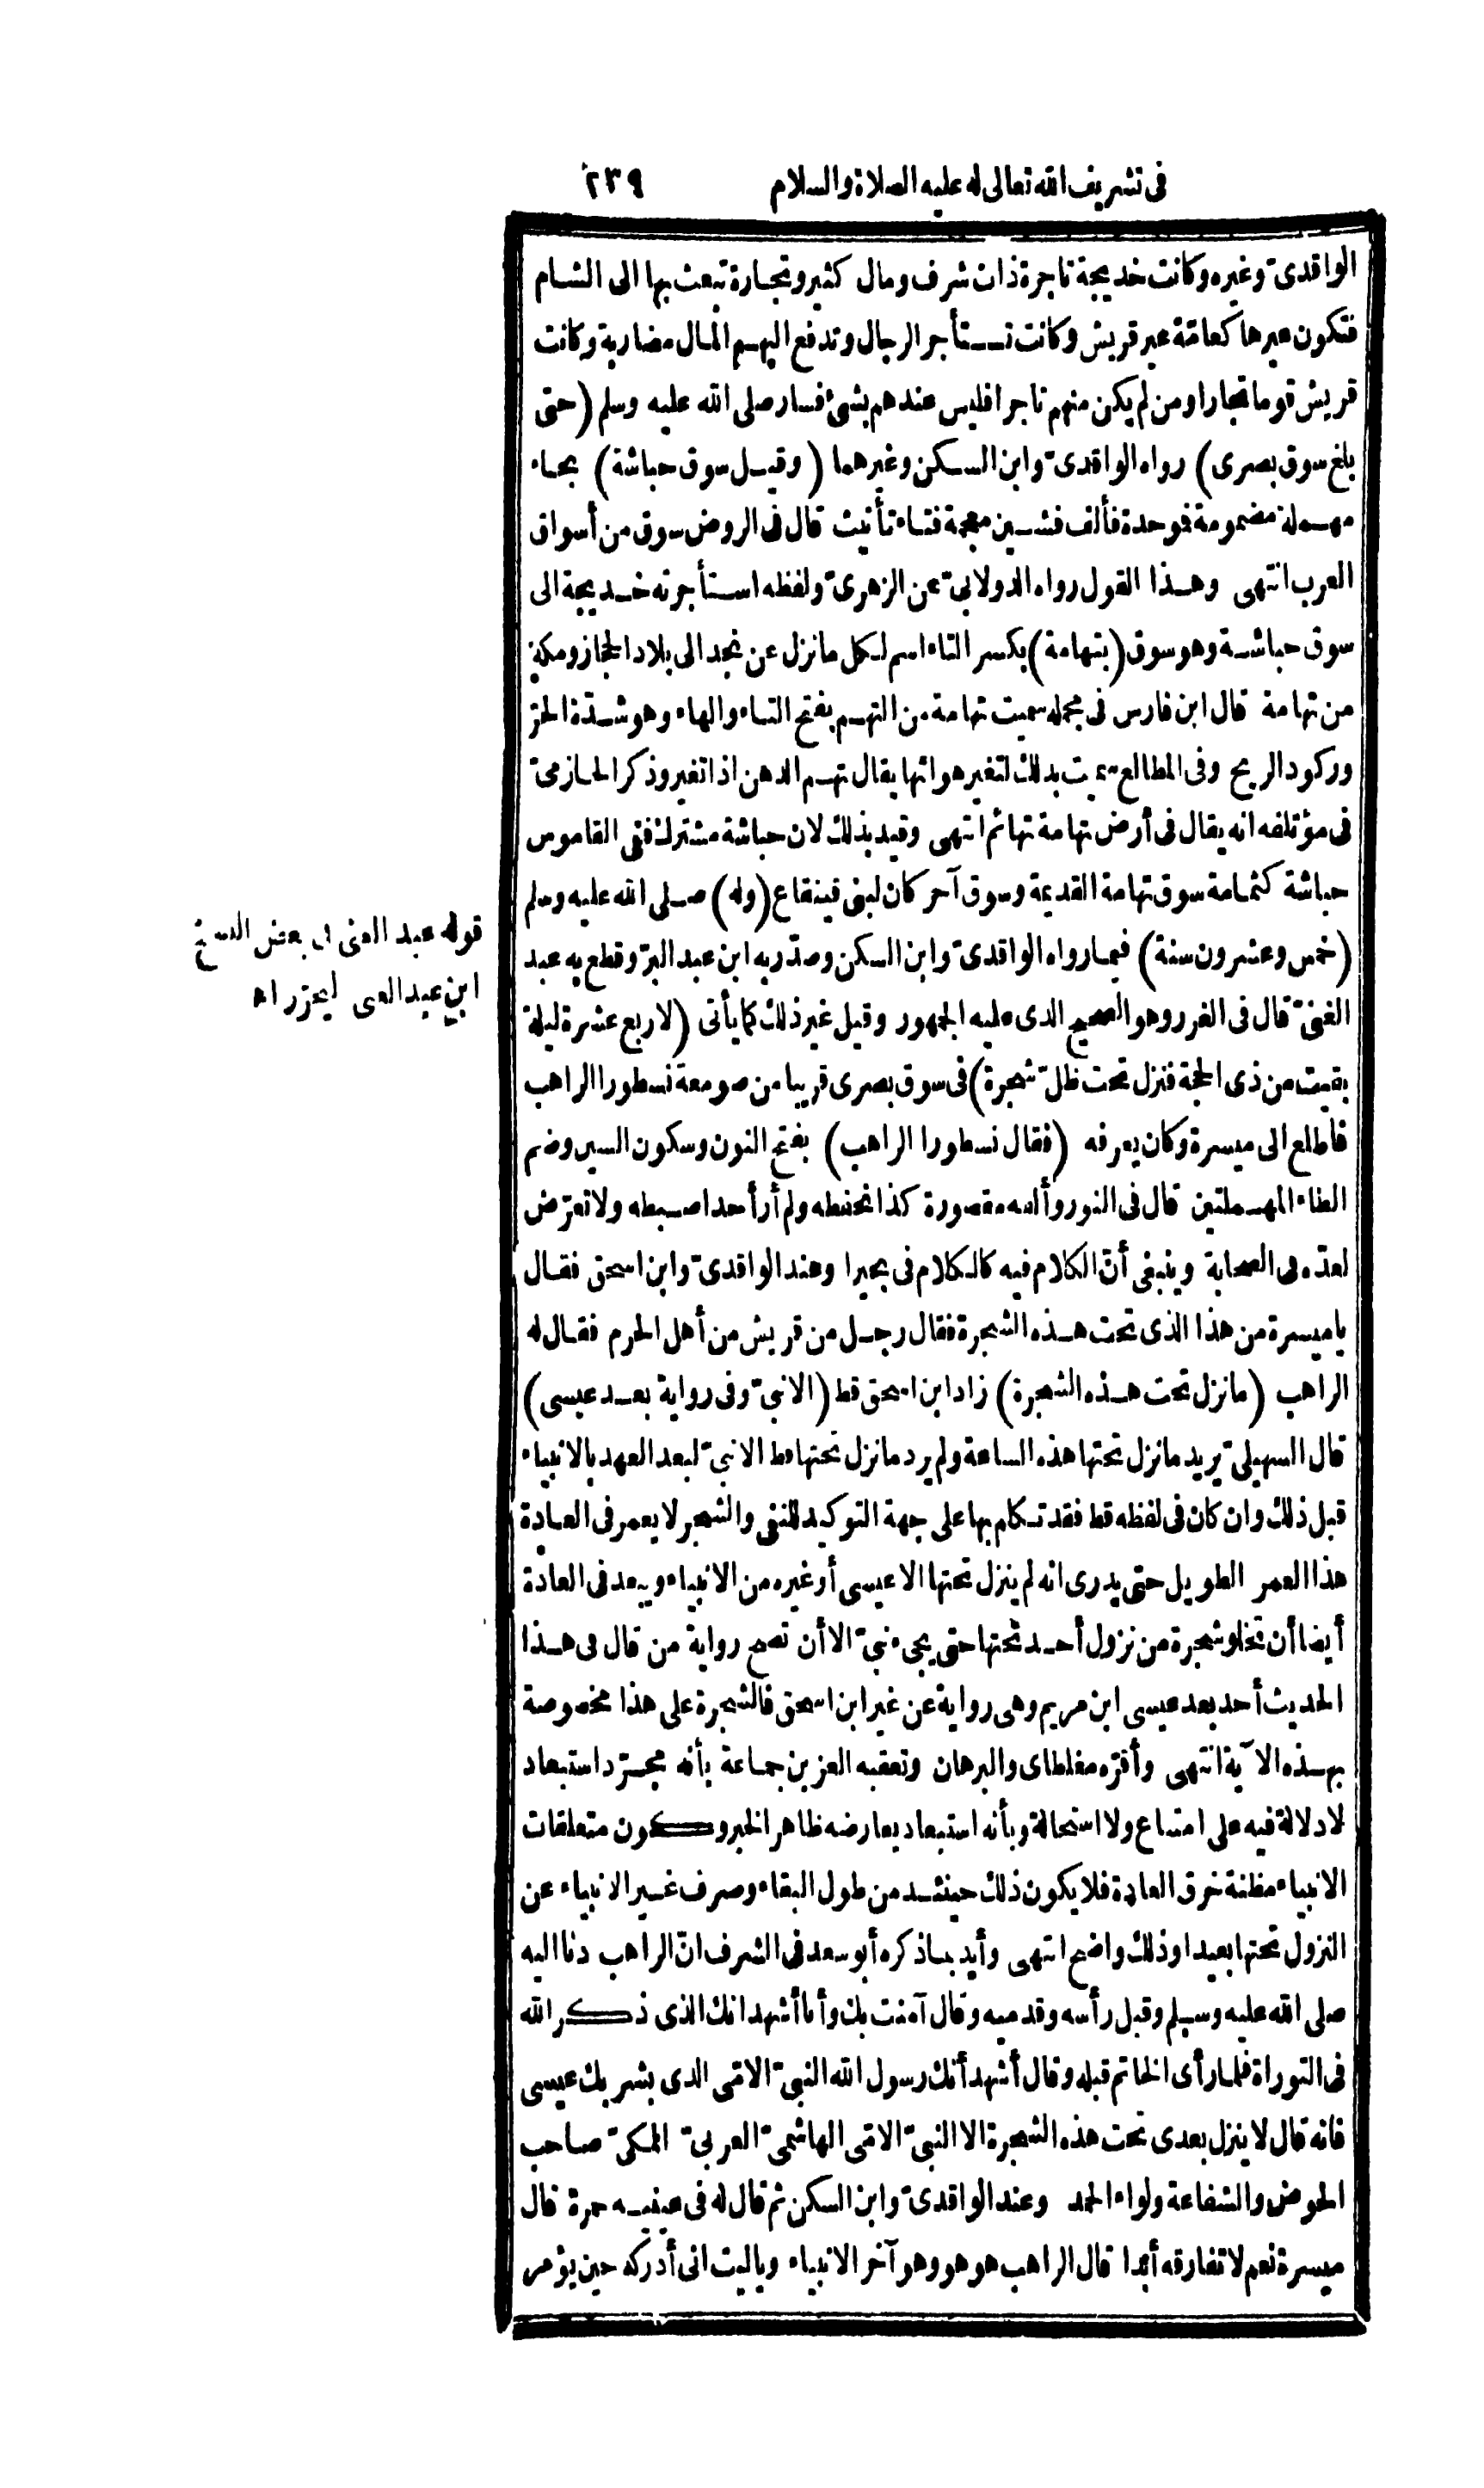 فى تشريف الله تعالى له عليه الصلاة والسلام ٢٣٩
الواقدىّ وغيره وكانت خديجة تاجرة ذات شرف ومال كثير وتجارة تبعث بها الى الشام
فتكون عيرها كعامّة عير قريش وكانت تستأجر الرجال وتدفع اليهم المال مضاربة وكانت
قريش قوما تجارا ومن لم يكن منهم تاجرا فليس عندهم بشئ فسار صلى الله عليه وسلم (حتى
بلغ سوق بصرى) رواه الواقدىّ وابن السكن وغيرهما (وقيل سوق حباشة) بحاء
مهملة مضمومة فوحدة فألف فشين معجمة فتاء تأنيث قال فى الروض سوق من أسواق
العرب انتهى وهذا القول رواه الدولابىّ عن الزهرىّ ولفظه استأجرته خديجة الى
سوق حباشة وهو سوق (بتهامة) بكسر التاء اسم لكل ما نزل عن نجد الى بلاد الحجاز ومكة
من تهامة قال ابن فارس فى مجمله سميت تهامة من التهم بفتح التاء والهاء وهو شدّة الحرّ
وركود الريح وفى المطالع سميت بذلك لتغير هوائها يقال تهم الدهن اذا تغير وذكر الحازمىّ
فى مؤتلفه انه يقال فى أرض تهامة تهائم انتهى وقيد بذلك لان حباشة مشترك ففى القاموس
حباشة كثمامة سوق تهامة القديمة وسوق آخر كان لبنى قينقاع (وله) صلى الله عليه وسلم
(خمس وعشرون سنة) فيما رواه الواقدىّ وابن السكن وصدّر به ابن عبد البرّ وقطع به عبد
الغنىّ قال فى الغرر وهو الصحيح الذى عليه الجمهور وقيل غير ذلك كما يأتى (لاربع عشرة ليلة
بقيت من ذى الحجة فنزل تحت ظلّ شجرة) فى سوق بصرى قريبا من صومعة نسطورا الراهب
فاطلع الى ميسرة وكان يعرفه (فقال نسطورا الراهب) بفتح النون وسكون السين وضم
الطاء المهملتين قال فى النور وألفه مقصورة كذا نحفظه ولم أر أحدا ضبطه ولا تعرّض
لعدّه فى الصحابة وينبغى أنّ الكلام فيه كالكلام فى بحيرا وعند الواقدىّ وابن اسحق فقال
يا ميسرة من هذا الذى تحت هذه الشجرة فقال رجل من قريش من أهل الحرم فقال له
الراهب (ما نزل تحت هذه الشجرة) زاد ابن اسحق قط (الا نبىّ وفى رواية بعد عيسى)
قال السهيلىّ يريد ما نزل تحتها هذه الساعة ولم يرد ما نزل تحتها قط الا نبىّ لبعد العهد بالانبياء
قبل ذلك وان كان فى لفظه قط فقد تكلم بها على جهة التوكيد للنفى والشجر لا يعمر فى العادة
هذا العمر الطويل حتى يدرى انه لم ينزل تحتها الا عيسى أو غيره من الانبياء ويبعد فى العادة
أيضا أن تخلو شجرة من نزول أحد تحتها حتى يجىء نبىّ الا أن تصح رواية من قال فى هذا
الحديث أحد بعد عيسى ابن مريم وهى رواية عن غير ابن اسحق فالشجرة على هذا مخصوصة
بهذه الآية انتهى وأقرّه مغلطاى والبرهان وتعقبه العز بن جماعة بأنه مجرّد استبعاد
لا دلالة فيه على امتناع ولا استحالة وبأنه استبعاد يعارضه ظاهر الخبر وكون متعلقات
الانبياء مظنة خرق العادة فلا يكون ذلك حينئذ من طول البقاء وصرف غير الانبياء عن
النزول تحتها بعيدا وذلك واضح انتهى وأيد بما ذكره أبو سعد فى الشرف انّ الراهب دنا اليه
صلى الله عليه وسلم وقبل رأسه وقدميه وقال آمنت بك وأنا أشهد انك الذى ذكر الله
فى التوراة فلما رأى الخاتم قبله وقال أشهد أنك رسول الله النبىّ الامّى الذى بشر بك عيسى
فانه قال لا ينزل بعدى تحت هذه الشجرة الا النبىّ الامّى الهاشمىّ العربىّ المكىّ صاحب
الحوض والشفاعة ولواء الحمد وعند الواقدىّ وابن السكن ثم قال له فى عينيه حمرة قال
ميسرة نعم لا تفارقه أبدا قال الراهب هو هو وهو آخر الانبياء ويا ليت انى أدركه حين يؤمر
قوله عبد الغنى فى بعض النسخ
ابن عبد الغنى ليحرر اه